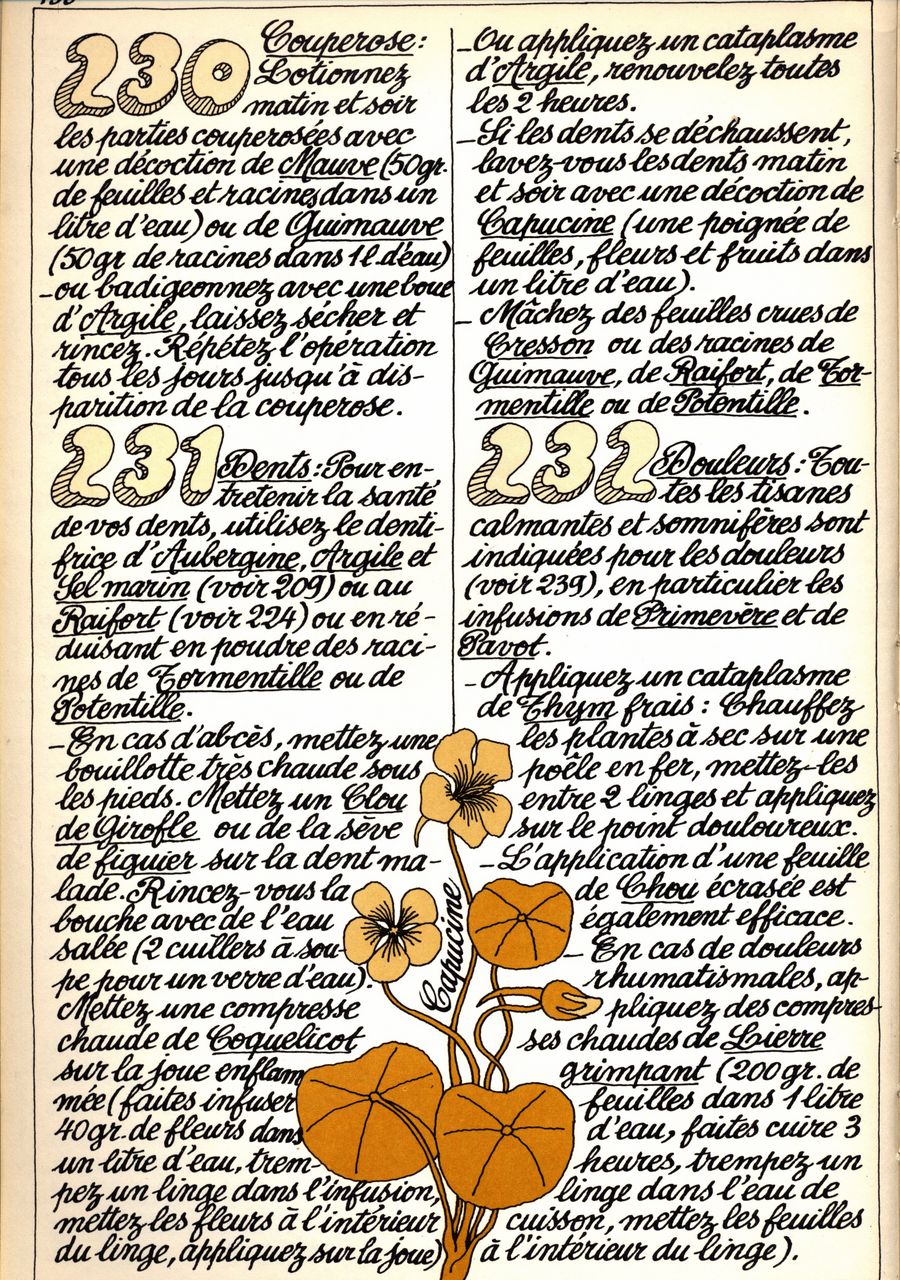 230 Couperose:
Lotionnez
matin et soir
les parties couperosées avec
une décoction de Mauve (50gr.
de feuilles et racines dans un
litre d'eau) ou de Guimauve
(50gr de racines dans 1l.d'eau)
_ou badigeonnez avec une boue
d'Argile, laissez sécher et
rincez. Répétez l'opération
tous les jours jusqu'à dis-
parition de la couperose.
231 Dents: Pour en-
tretenir la santé
de vos dents, utilisez le denti-
frice d'Aubergine, Argile et
Sel marin (voir 209) ou au
Raifort (voir 224) ou en ré-
duisant en poudre des raci-
nes de Tormentille ou de
Potentille.
_En cas d'abcès, mettez une
bouillotte très chaude sous
les pieds. Mettez un Clou
de Girofle ou de la sève
de figuier sur la dent ma-
lade. Rincez-vous la
bouche avec de l'eau
salée (2 cuillers à sou-
pe pour un verre d'eau).
Mettez une compresse
chaude de Coquelicot
sur la joue enflam
mée (faites infuser
40gr. de fleurs dans
un litre d'eau, trem-
pez un linge dans l'infusion,
mettez les fleurs à l'intérieur
du linge, appliquez sur la joue)
_Ou appliquez un cataplasme
d'Argile, renouvelez toutes
les 2 heures.
_Si les dents se déchaussent,
lavez-vous les dents matin
et soir avec une décoction de
Capucine (une poignée de
feuilles, fleurs et fruits dans
un litre d'eau).
_ Mâchez des feuilles crues de
Cresson ou des racines de
Guimauve, de Raifort, de Tor-
mentille ou de Potentille.
232 Douleurs: Tou-
tes les tisanes
calmantes et somnifères sont
indiquées pour les douleurs
(voir 239), en particulier les
infusions de Primevère et de
Pavot.
_Appliquez un cataplasme
de Thym frais: Chauffez
les plantes à sec sur une
poêle en fer, mettez-les
entre 2 linges et appliquez
sur le point douloureux.
_L'application d'une feuille
de Chou écrasée est
également efficace.
_ En cas de douleurs
rhumatismales, ap-
pliquez des compres-
ses chaudes de Lierre
grimpant (200gr. de
feuilles dans 1 litre
d'eau, faites cuire 3
heures, trempez un
linge dans l'eau de
cuisson, mettez les feuilles
à l'intérieur du linge).
Capucine